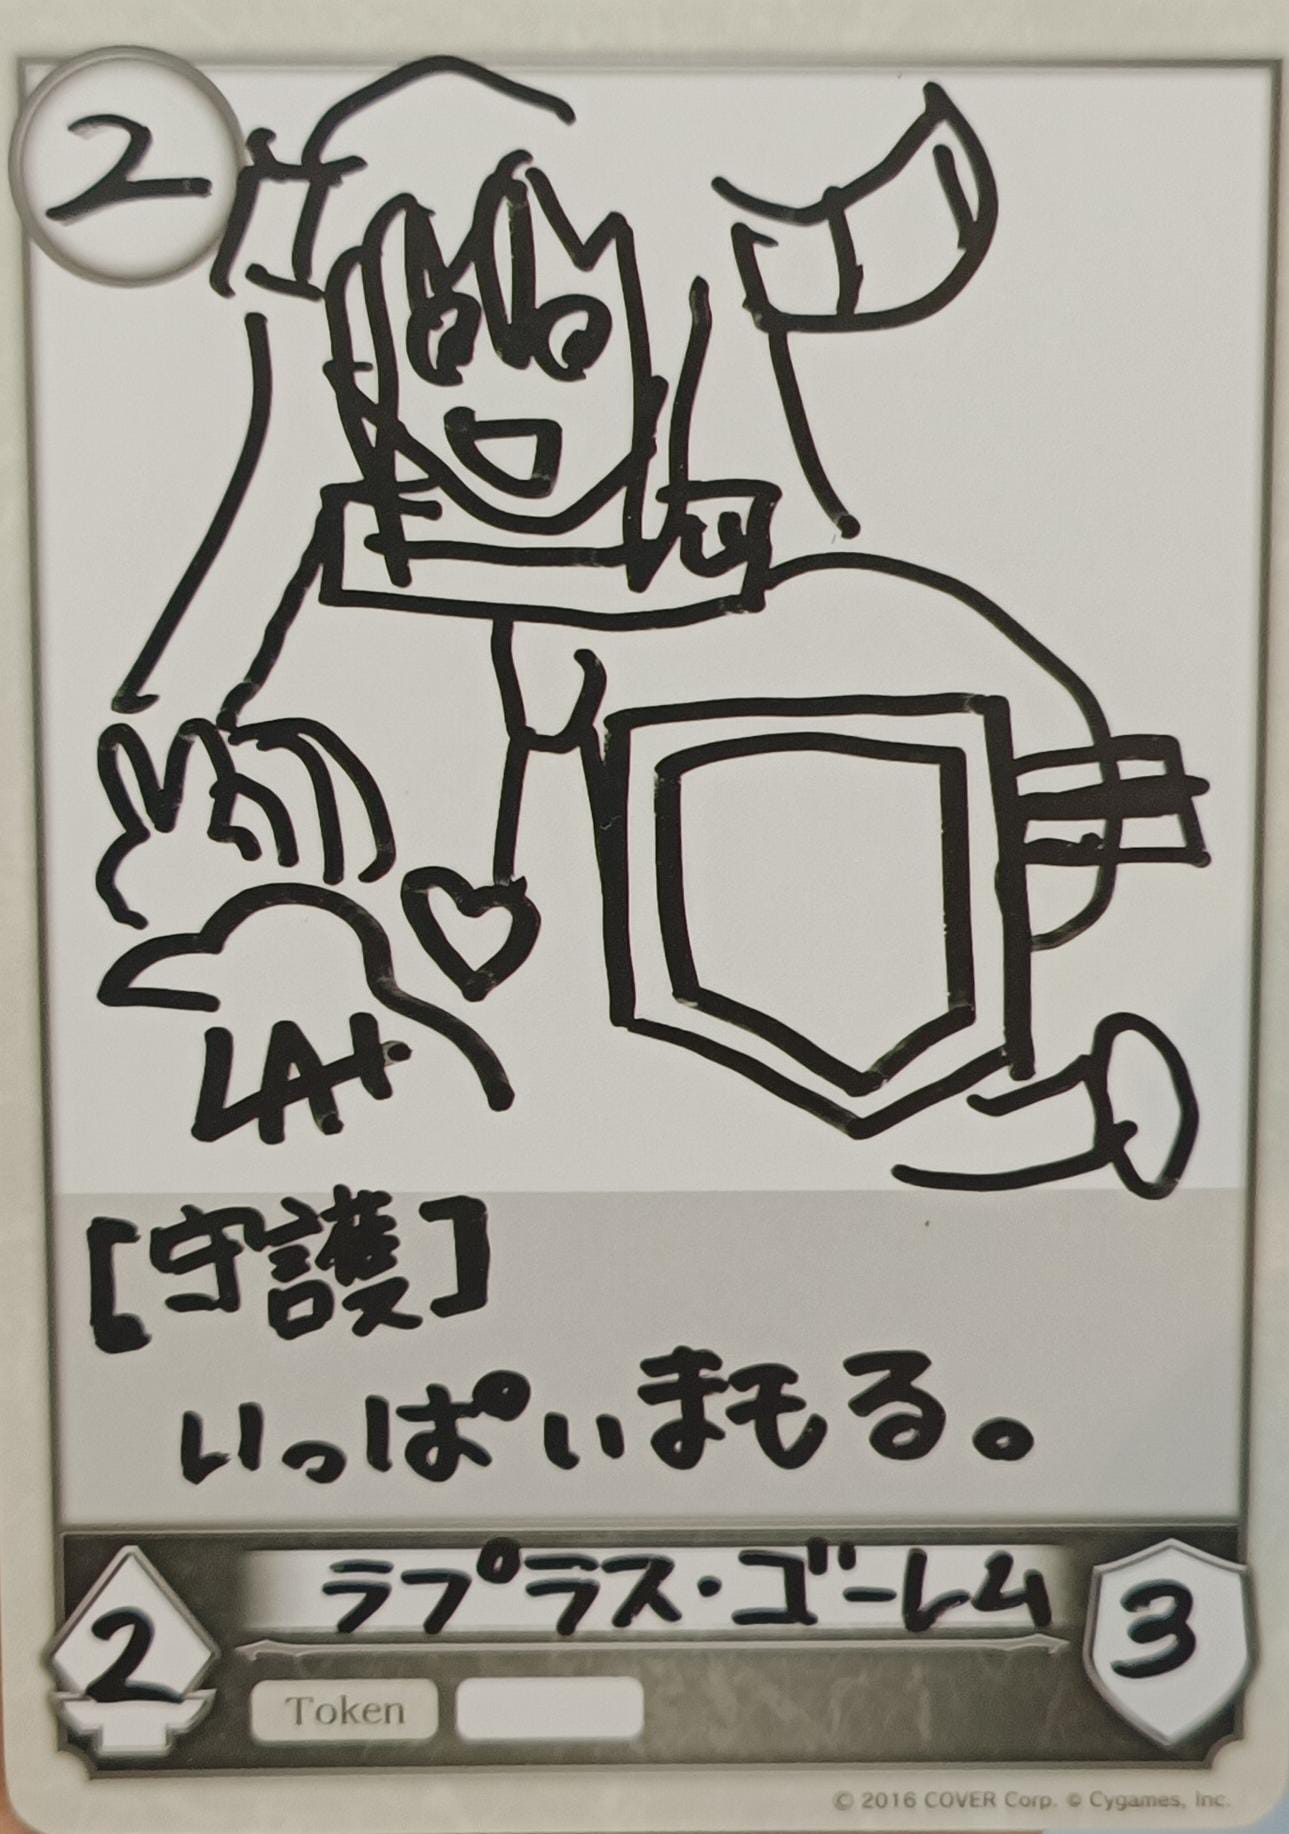 2
LA+
[守護]
いっぱいまもる。
ラプラス・ゴーレム
2
3
Token
© 2016 COVER Corp. © Cygames, Inc.